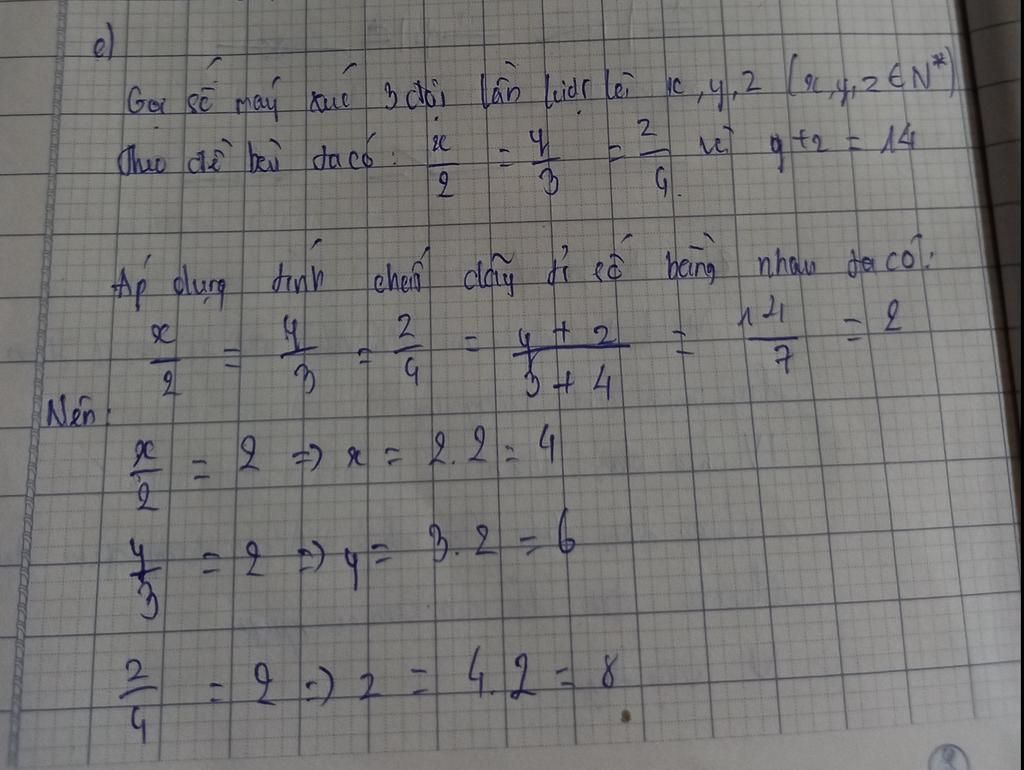 c)
Gọi số máy xúc 3 đội lần lượt là x, y, z (x, y, z ∈ N*)
Theo đề bài ta có: x/2 = y/3 = z/4 và y + z = 14
Áp dụng tính chất dãy tỉ số bằng nhau ta có:
x/2 = y/3 = z/4 = (y + z)/(3 + 4) = 14/7 = 2
Nên:
x/2 = 2 => x = 2.2 = 4
y/3 = 2 => y = 3.2 = 6
z/4 = 2 => z = 4.2 = 8